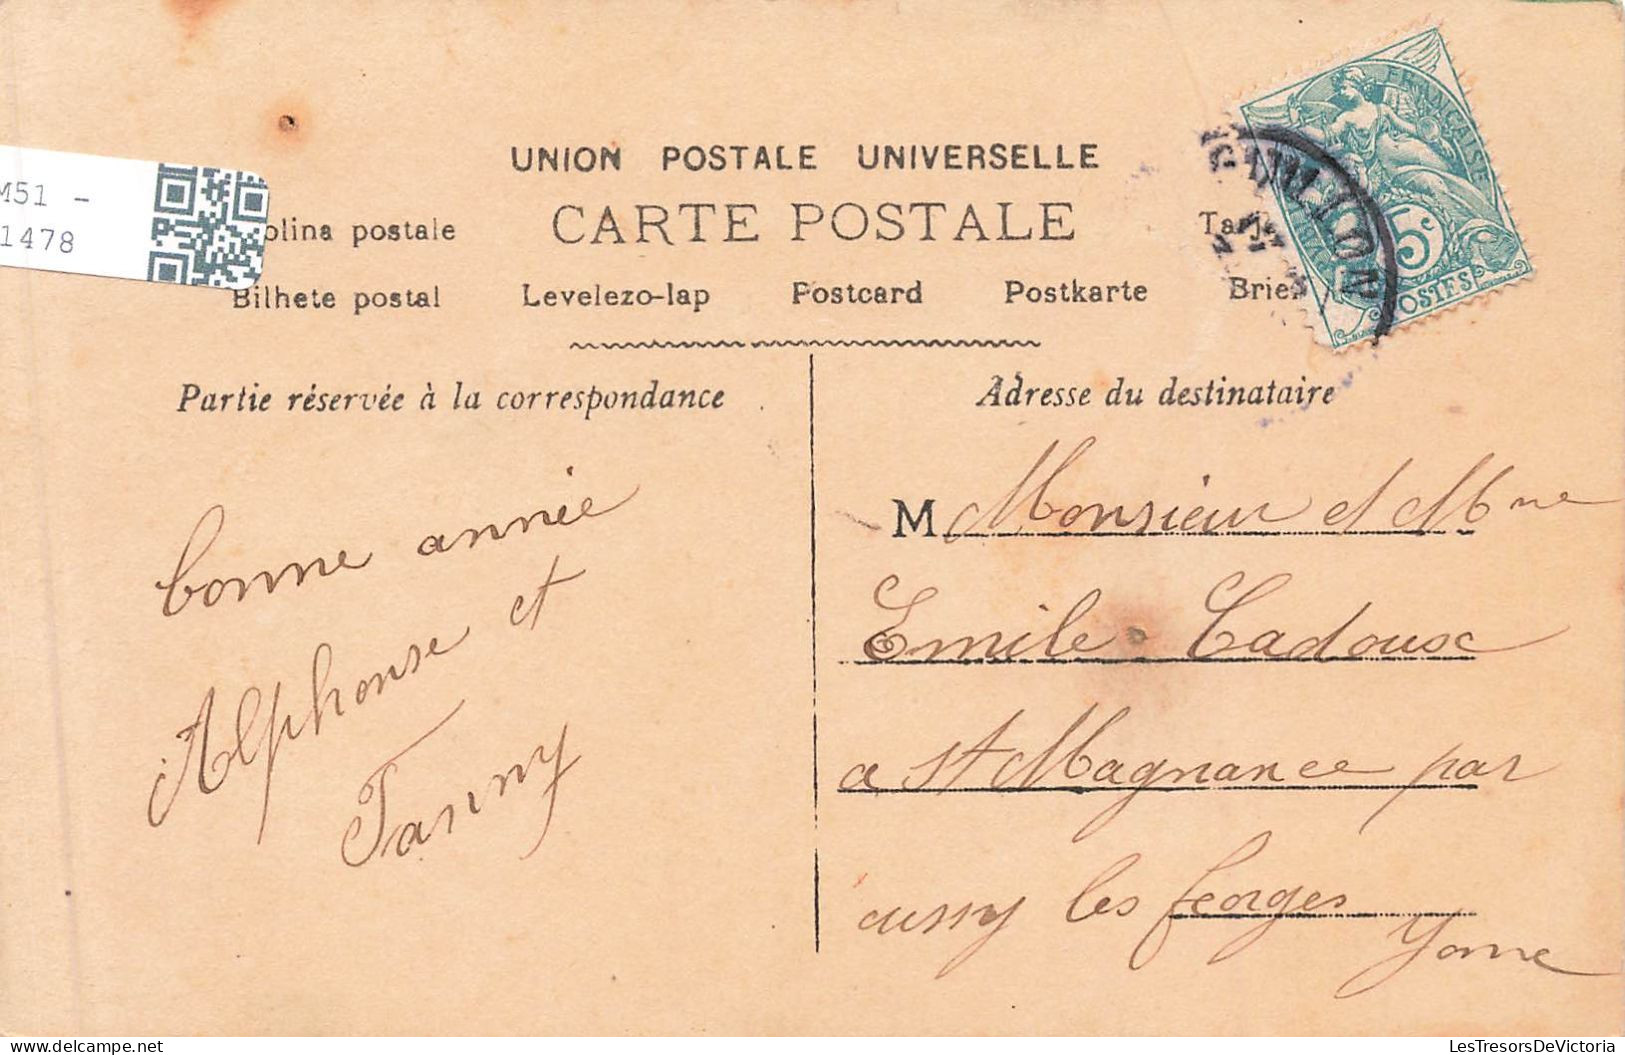 M51 -
1478
UNION POSTALE UNIVERSELLE
CARTE POSTALE
postale
Bilhete postal
Levelezo-lap
Postcard
Postkarte
FRANÇAISE
5c
POSTES
Partie réservée à la correspondance
Adresse du destinataire
bonne année
Alphonse et
Fanny
M Monsieur et Mme
Emile Cadoux
a St Magnance par
cussy les forges
Yonne
LesTresorsDeVictoria.com